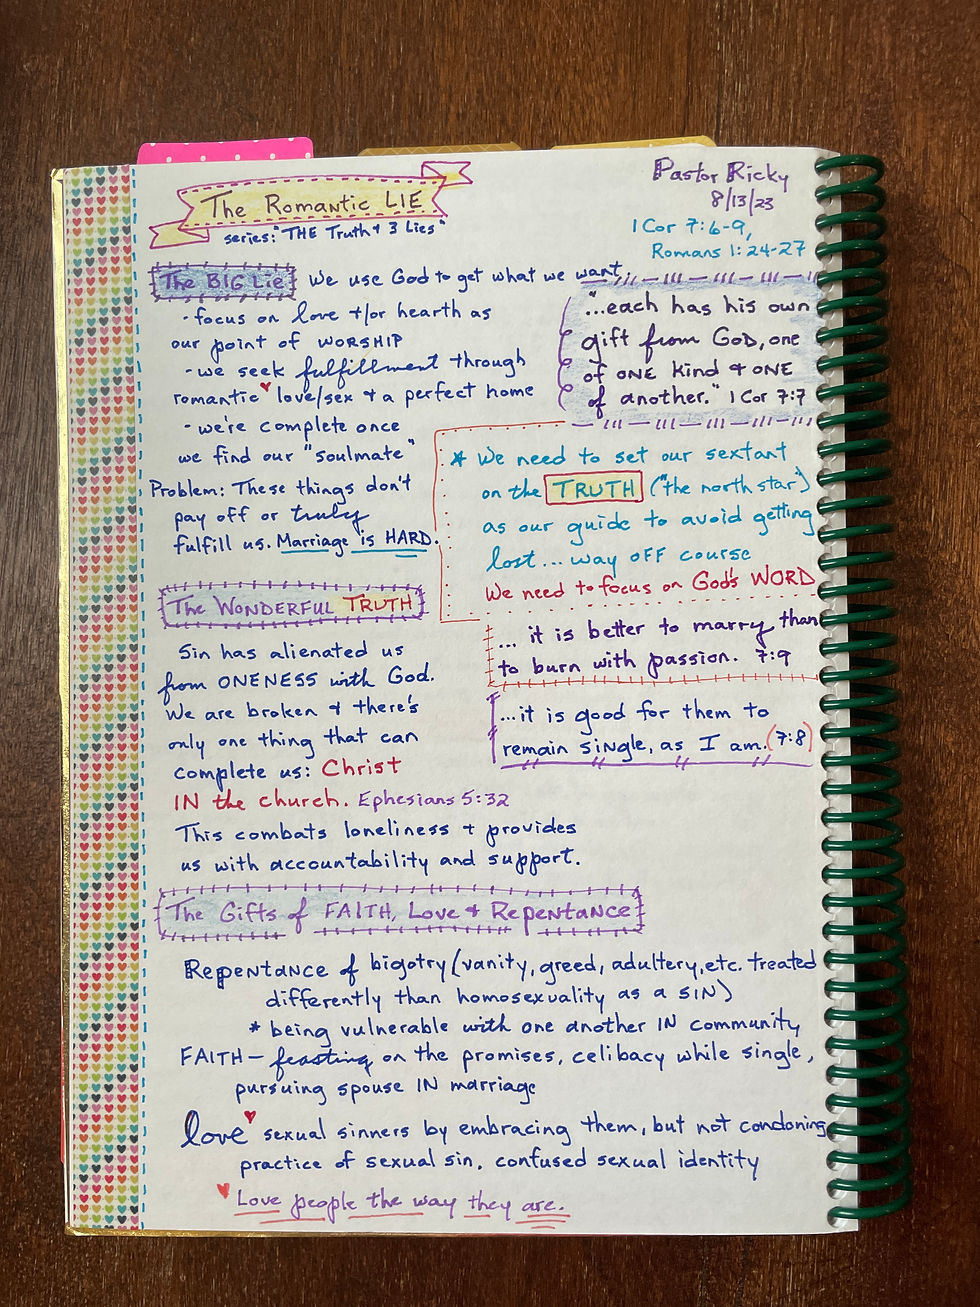 The Romantic LIE
series: "THE Truth + 3 Lies"
Pastor Ricky
8/13/23
1 Cor 7:6-9,
Romans 1:24-27
The BIG Lie We use God to get what we want
- focus on love +/or hearth as
our point of WORSHIP
- we seek fulfillment through
romantic love/sex + a perfect home
- we're complete once
we find our "soulmate"
Problem: These things don't
pay off or truly
fulfill us. Marriage is HARD.
"...each has his own
gift from GOD, one
of ONE kind + ONE
of another." 1 Cor 7:7
* We need to set our sextant
on the TRUTH ("the north star")
as our guide to avoid getting
lost... way OFF course
We need to focus on God's WORD
... it is better to marry than
to burn with passion. 7:9
...it is good for them to
remain single, as I am. (7:8)
The WONDERFUL TRUTH
Sin has alienated us
from ONENESS with God.
We are broken + there's
only one thing that can
complete us: Christ
IN the church. Ephesians 5:32
This combats loneliness + provides
us with accountability and support.
The Gifts of FAITH, Love + Repentance
Repentance of bigotry (vanity, greed, adultery, etc. treated
differently than homosexuality as a SIN)
* being vulnerable with one another IN community
FAITH - feasting on the promises, celibacy while single,
pursuing spouse IN marriage
love sexual sinners by embracing them, but not condoning
practice of sexual sin. confused sexual identity
Love people the way they are.